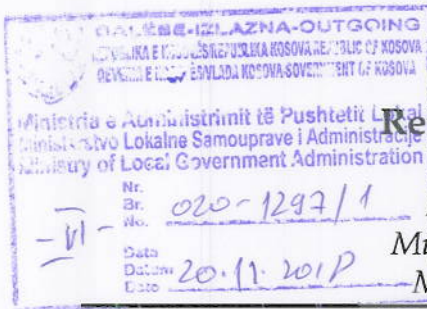 DALËSE-IZLAZNA-OUTGOING
REPUBLIKA E KOSOVËS-REPUBLIKA KOSOVA-REPUBLIC OF KOSOVA
QEVERIA E KOSOVËS-VLADA KOSOVA-GOVERNMENT OF KOSOVA
Ministria e Administrimit të Pushtetit Lokal
Ministarstvo Lokalne Samouprave i Administracije
Ministry of Local Government Administration
Re
Nr.
Br.
No. 020-1297/1
- VI -
Data
Datum
Date 20.11.201
Mu
M